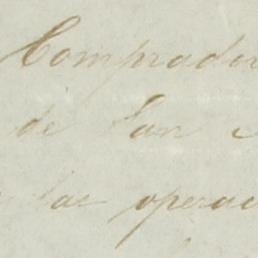 Comprador
de San
las operac